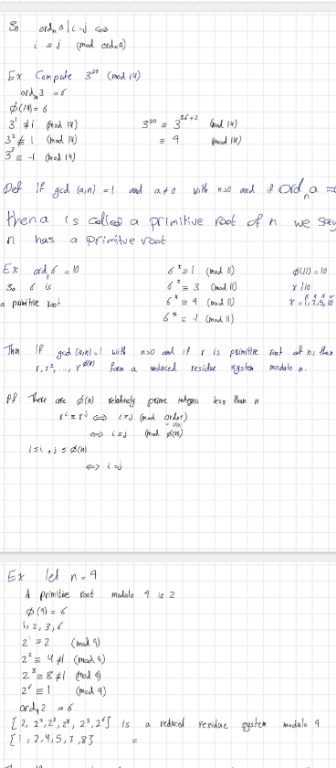 So ordₙa | i-j ⇔
i ≡ j (mod ordₙa)
Ex Compute 3²⁰ (mod 14)
ord₁₄3 = 6
φ(14) = 6
3¹ ≢ 1 (mod 14) 3²⁰ ≡ 3 (mod 14)
3² ≢ 1 (mod 14) ≡ 9 (mod 14)
3³ ≡ -1 (mod 14)
Def If gcd (a,n) = 1 and a≠0 with n>0 and if ordₙa =
then a is called a primitive root of n we say
n has a primitve root
Ex ord 6 = 10 (mod 11) φ(11) = 10
So 6 is 6² ≡ 3 (mod 11) x | 10
a primitive root (mod 11) x = 1, 2, 5, 10
6⁵ ≡ -1 (mod 11)
Thm If gcd (a,n) = 1 with n>0 and if r is primitive root of n, then
r, r², ..., r^φ(n) form a reduced residue system modulo n.
Pf There are φ(n) relatively prime integers less than n
rⁱ ≡ rʲ ⇔ i ≡ j (mod ordₙr)
⇔ i ≡ j (mod φ(n))
1 ≤ i, j ≤ φ(n)
⇔ i = j
Ex let n = 9
A primitive root modulo 9 is 2
φ(9) = 6
1, 2, 3, 6
2¹ ≡ 2 (mod 9)
2² ≡ 4 ≢ 1 (mod 9)
2³ ≡ 8 ≢ 1 (mod 9)
2⁶ ≡ 1 (mod 9)
ord₉2 = 6
{2, 2², 2³, 2⁴, 2⁵, 2⁶} is a reduced residue system modulo 9
{1, 2, 4, 5, 7, 8} =